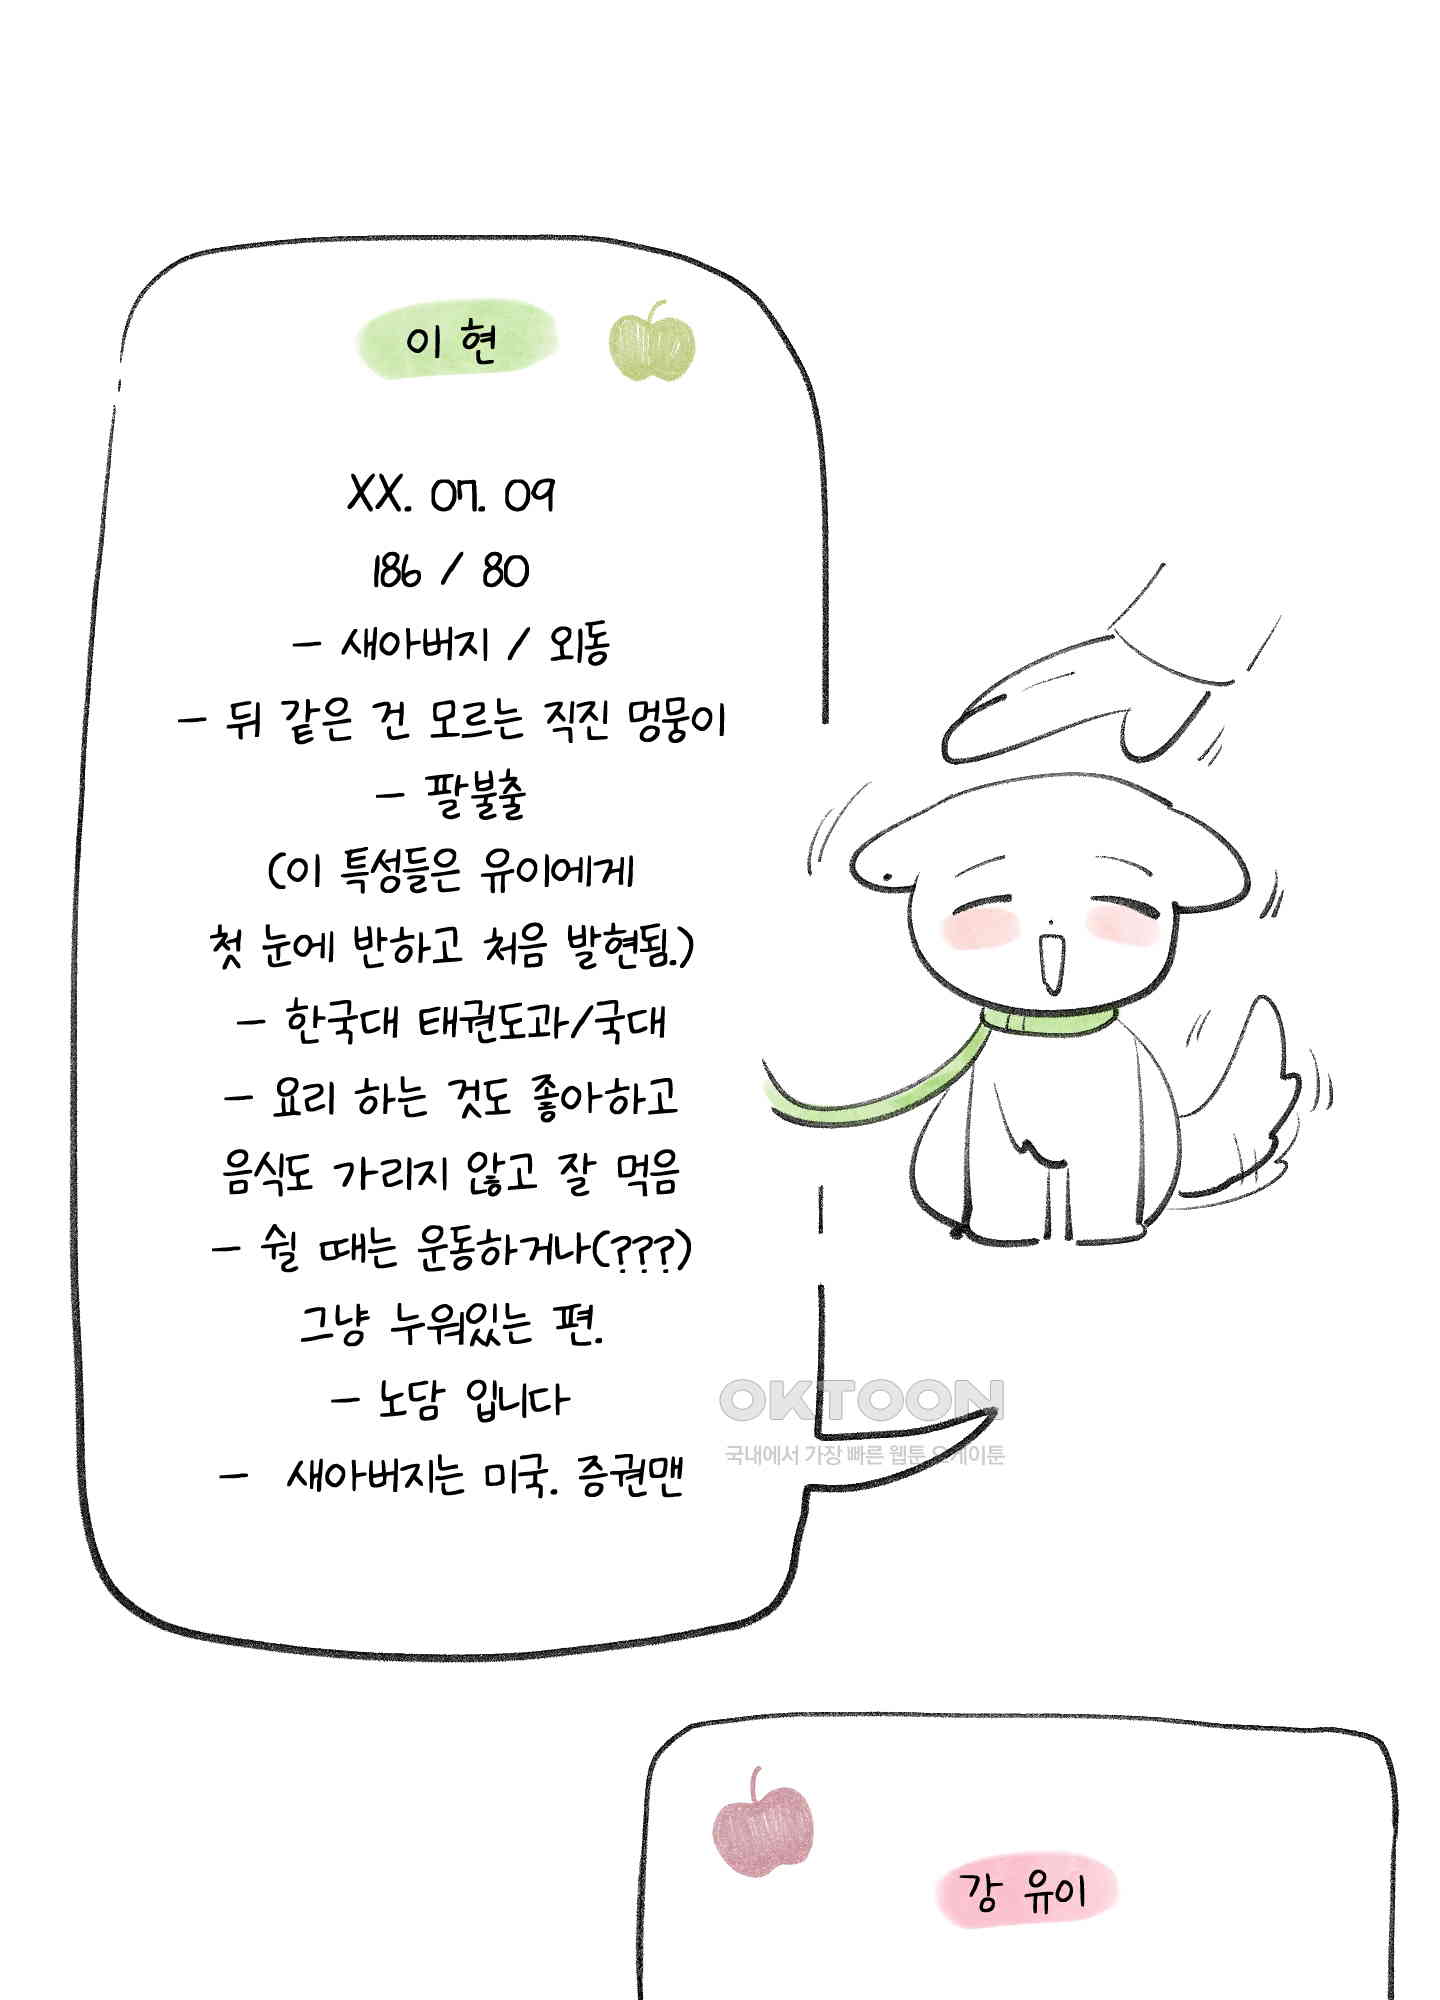 이 현
XX. 07. 09
186 / 80
- 새아버지 / 외동
- 뒤 같은 건 모르는 직진 멍뭉이
- 팔불출
(이 특성들은 유이에게
첫 눈에 반하고 처음 발현됨.)
- 한국대 태권도과/국대
- 요리 하는 것도 좋아하고
음식도 가리지 않고 잘 먹음
- 쉴 때는 운동하거나(???)
그냥 누워있는 편.
- 노담 입니다
- 새아버지는 미국. 증권맨
OKTOON
국내에서 가장 빠른 웹툰 오케이툰
강 유이